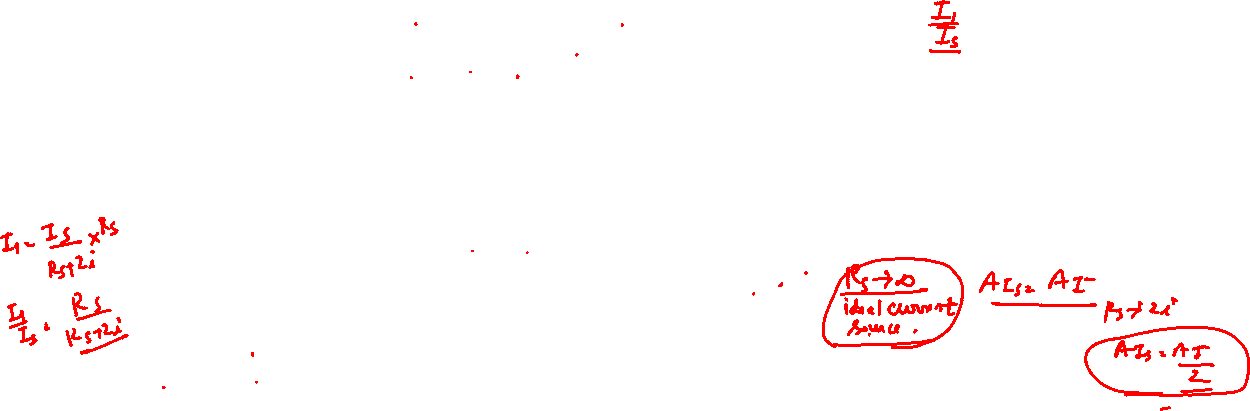 I₁/Iₛ
I₁ = Iₛ/(Rₛ+Zi) × Rₛ
I₁/Iₛ = Rₛ/(Rₛ+Zi)
Rₛ→∞
ideal current
source.
AIₛ = AI
Rₛ→Zi
AIₛ = AI/2